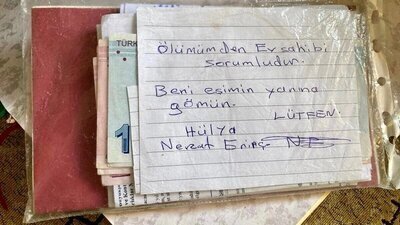 Ölümümden Evsahibi
sorumludur.
Beni eşimin yanına
gömün.
LÜTFEN.
Hülya
TÜRK
1